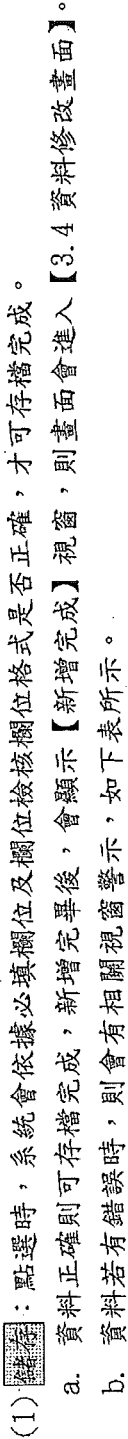 (1) 儲存：點選時，系統會依據必填欄位及欄位檢核欄位格式是否正確，才可存檔完成。
a. 資料正確則可存檔完成，新增完畢後，會顯示【新增完成】視窗，則畫面會進入【3.4 資料修改畫面】。
b. 資料若有錯誤時，則會有相關視窗警示，如下表所示。